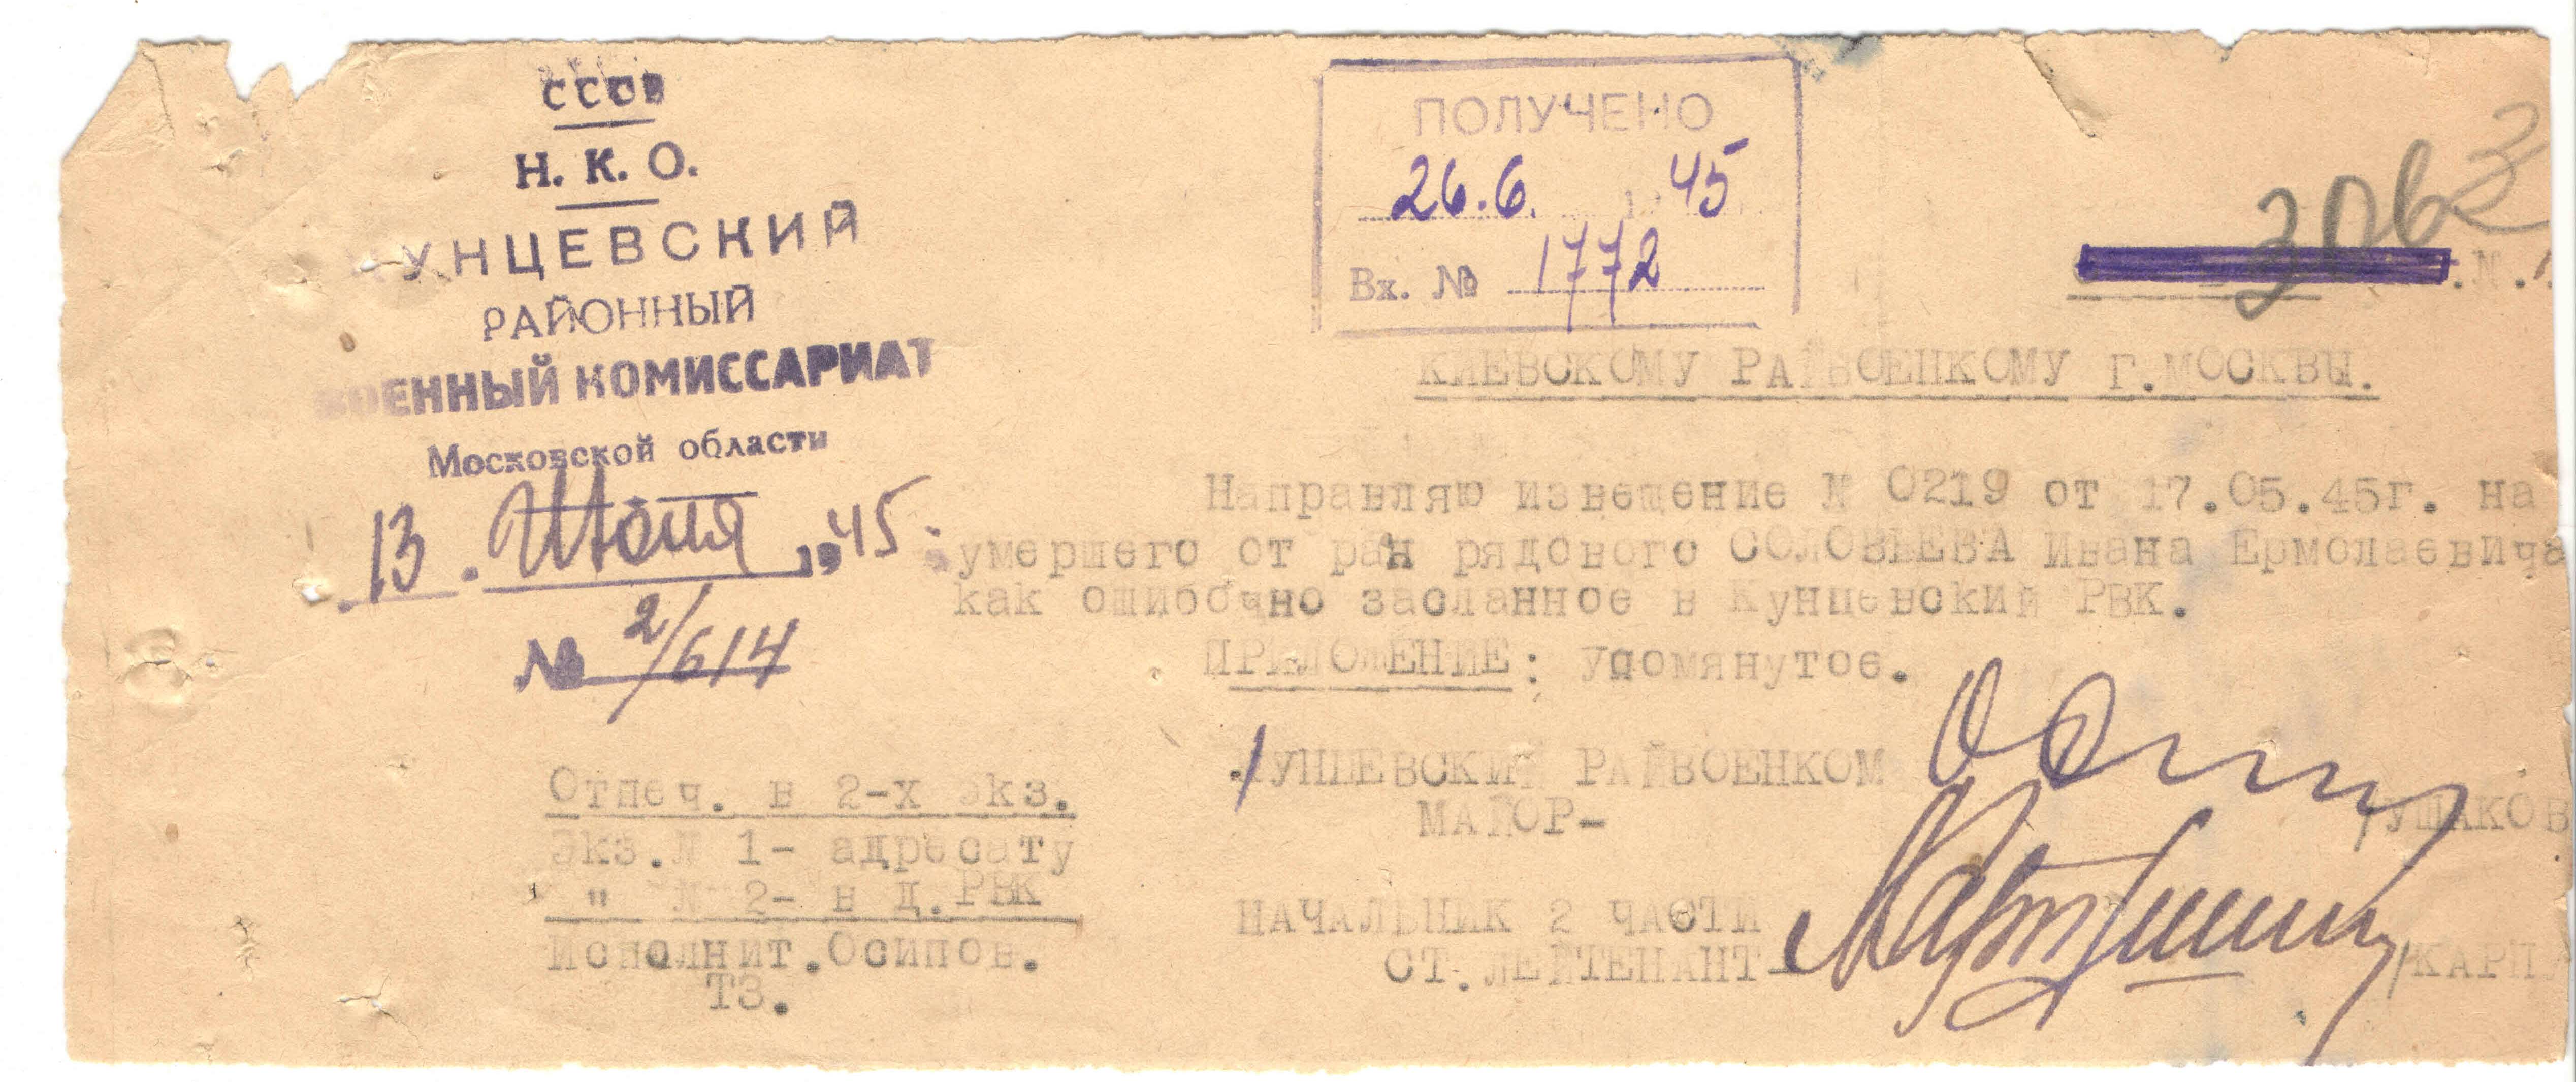 СССР
Н. К. О.
КУНЦЕВСКИЙ
РАЙОННЫЙ
ВОЕННЫЙ КОМИССАРИАТ
Московской области
13. Июня 1945.
№ 2/614
ПОЛУЧЕНО
26.6. 45
Вх. № 1772
3063
КИЕВСКОМУ РАЙВОЕНКОМУ Г.МОСКВЫ.
Направляю извещение № 0219 от 17.05.45г. на
умершего от ран рядового СОЛОВЬЕВА Ивана Ермолаевича
как ошибочно засланное в Кунцевский РВК.
ПРИЛОЖЕНИЕ: Упомянутое.
КУНЦЕВСКИЙ РАЙВОЕНКОМ
МАЙОР-
/УШАКОВ
НАЧАЛЬНИК 2 ЧАСТИ
СТ.ЛЕЙТЕНАНТ-
/КАРП
Отпеч. в 2-х экз.
Экз.№ 1- адресату
" № 2- в Д.РВК
Исполнит.Осипов.
ТЗ.